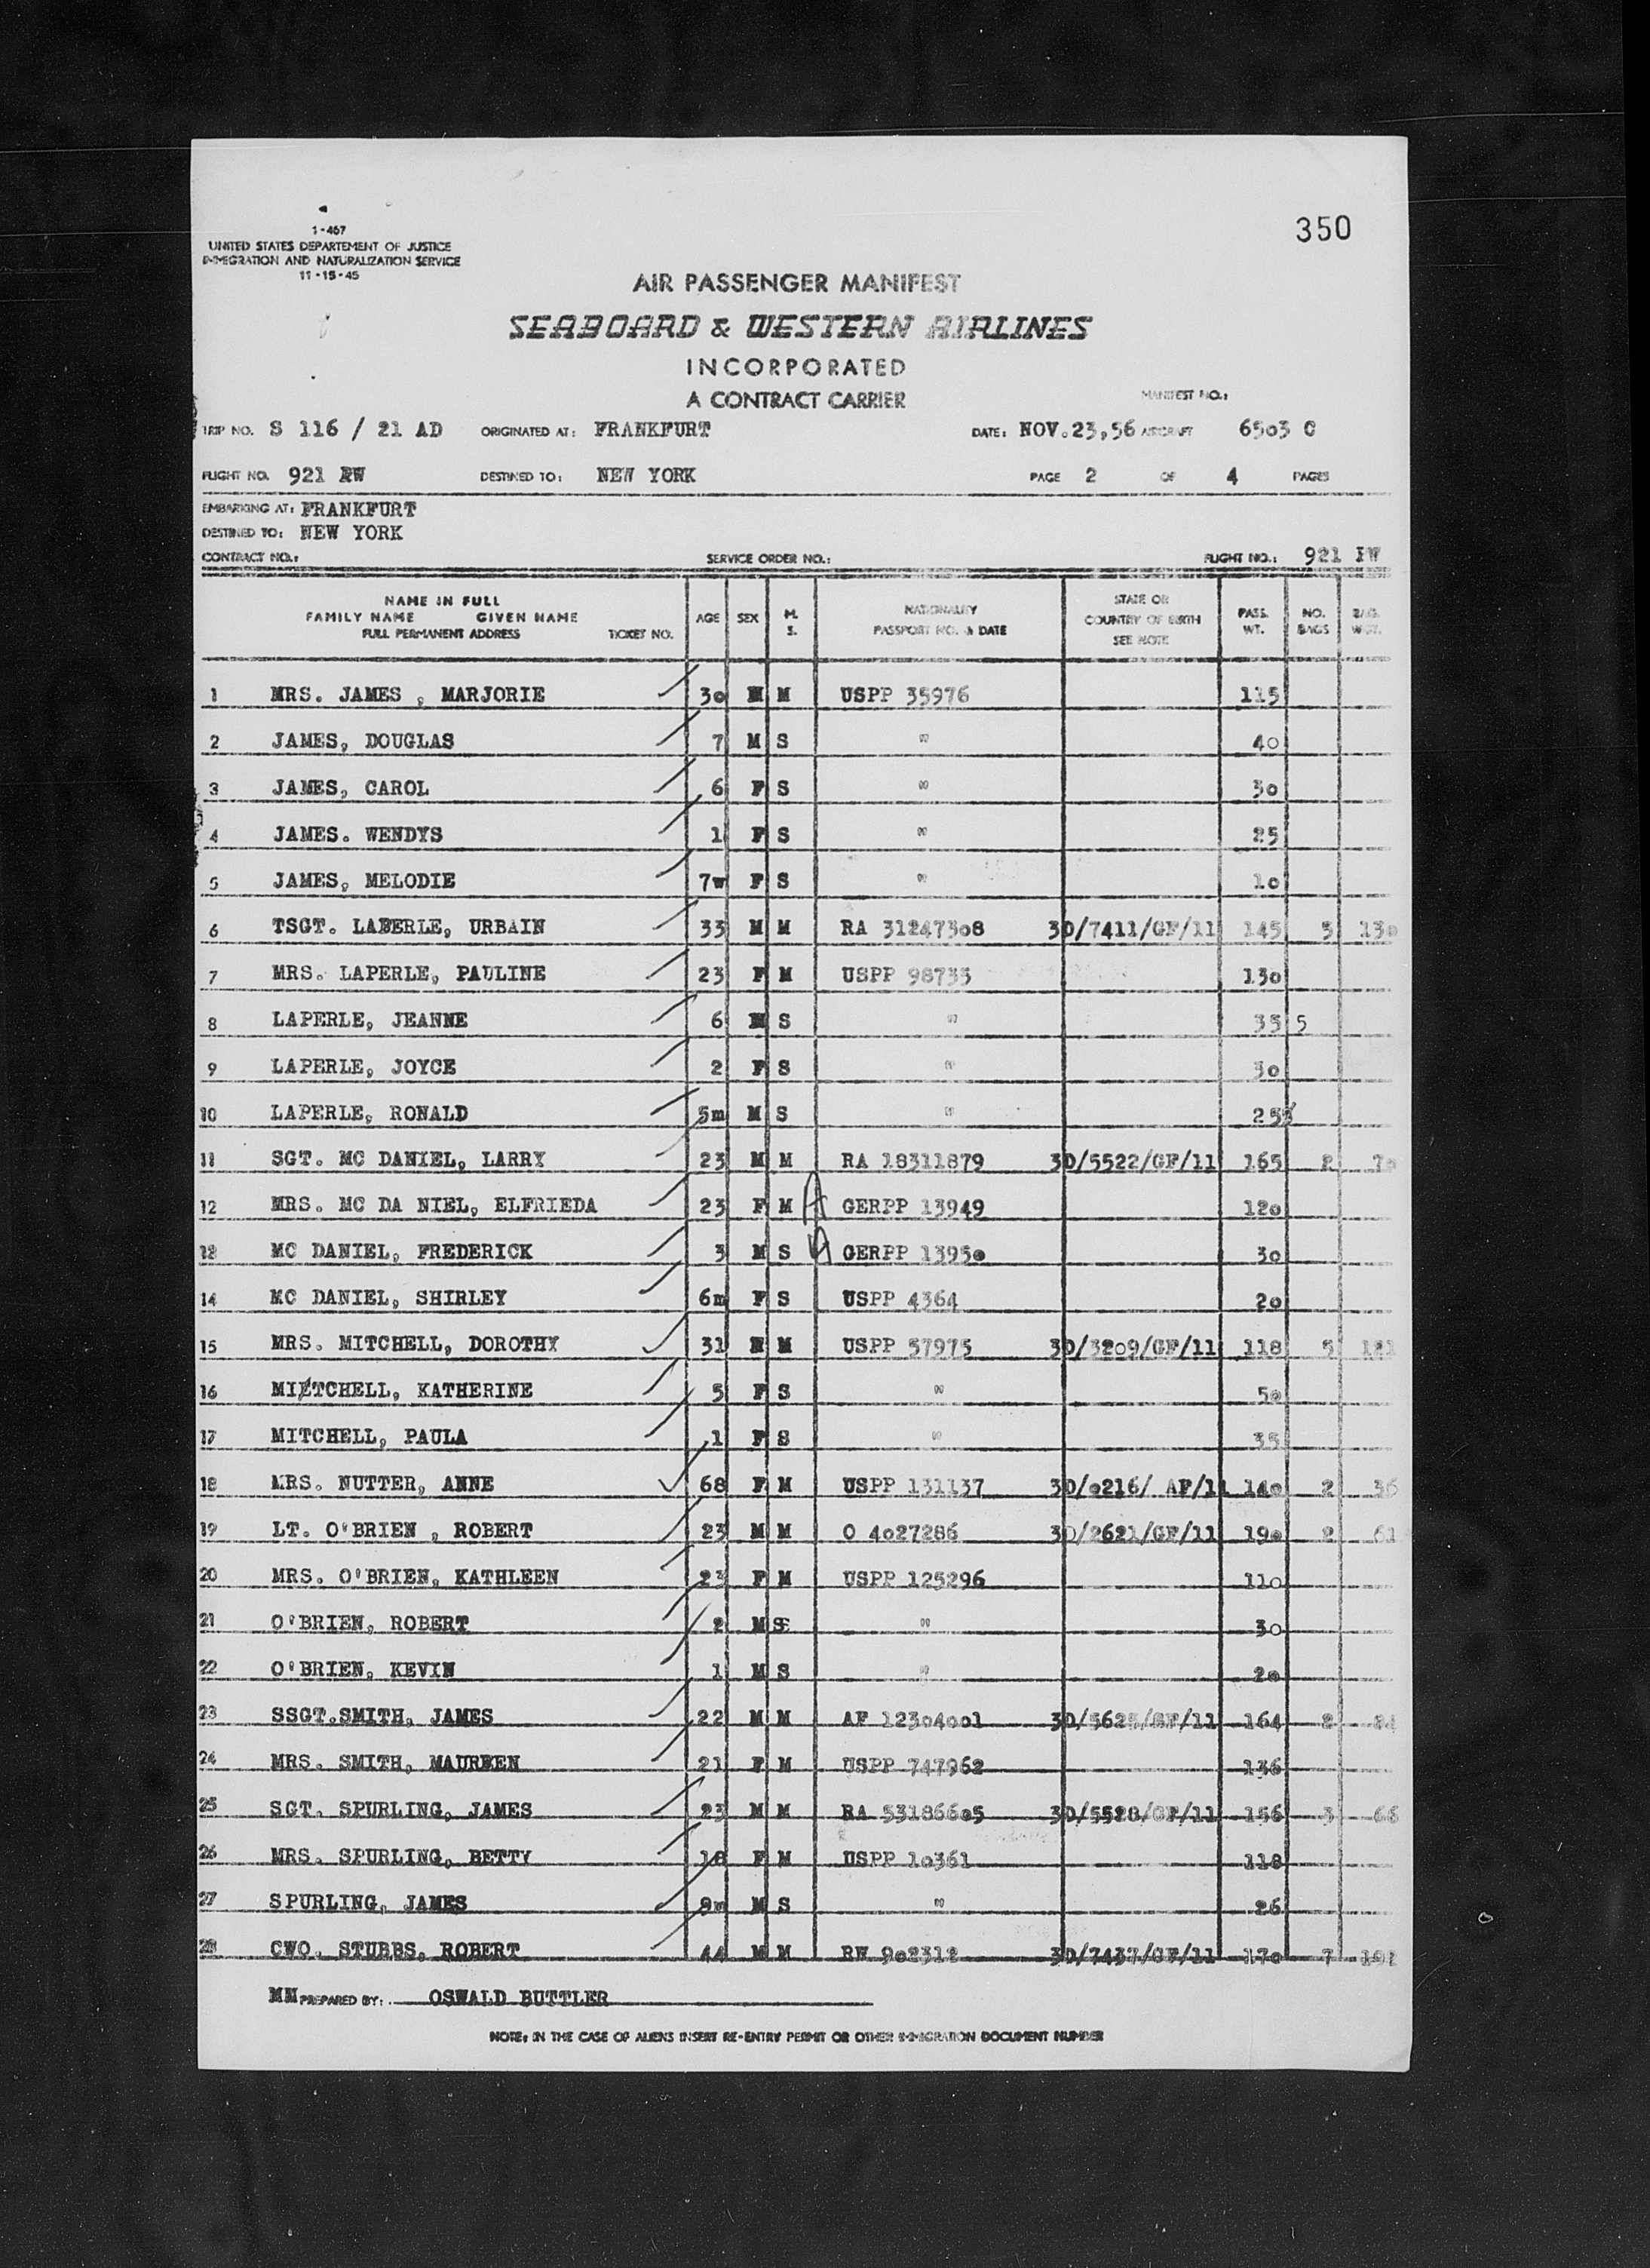 350
1-467
UNITED STATES DEPARTEMENT OF JUSTICE
IMMIGRATION AND NATURALIZATION SERVICE
11-15-45
AIR PASSENGER MANIFEST
SEABOARD & WESTERN AIRLINES
INCORPORATED
A CONTRACT CARRIER
MANIFEST NO.:
TRIP NO. S 116 / 21 AD ORIGINATED AT: FRANKFURT DATE: NOV.23,56 AIRCRAFT 6503 C
FLIGHT NO. 921 RW DESTINED TO: NEW YORK PAGE 2 OF 4 PAGES
EMBARKING AT: FRANKFURT
DESTINED TO: NEW YORK
CONTRACT NO.: SERVICE ORDER NO.: FLIGHT NO.: 921
NAME IN FULL
FAMILY NAME GIVEN NAME
FULL PERMANENT ADDRESS TICKET NO. AGE SEX M. S. NATIONALITY PASSPORT NO. & DATE STATE OR COUNTRY OF BIRTH SEE NOTE PASS. WT. NO. BAGS BAG. WGT.
1 MRS. JAMES , MARJORIE 3o M USPP 35976 115
2 JAMES, DOUGLAS 7 M S " 4o
3 JAMES, CAROL 6 F S " 3o
4 JAMES. WENDYS 1 F S " 25
5 JAMES, MELODIE 7w F S " 1o
6 TSGT. LAPERLE, URBAIN 33 M M RA 312473o8 3D/7411/GF/11 145 5 13o
7 MRS. LAPERLE, PAULINE 23 F M USPP 98735 13o
8 LAPERLE, JEANNE 6 S " 35 5
9 LAPERLE, JOYCE 2 F S " 3o
10 LAPERLE, RONALD 5m M S " 25
11 SGT. MC DANIEL, LARRY 23 M M RA 18311879 3D/5522/GF/11 165 2 7o
12 MRS. MC DA NIEL, ELFRIEDA 23 F M A GERPP 13949 12o
13 MC DANIEL, FREDERICK 3 M S A GERPP 1395o 3o
14 MC DANIEL, SHIRLEY 6m F S USPP 4364 2o
15 MRS. MITCHELL, DOROTHY 31 M USPP 57975 3D/32o9/GF/11 118 5 121
16 MIETCHELL, KATHERINE 5 F S " 5o
17 MITCHELL, PAULA 1 F S " 35
18 MRS. NUTTER, ANNE 68 F M USPP 131137 3D/o216/ AF/11 14o 2 36
19 LT. O'BRIEN , ROBERT 23 M M O 4o27286 3D/2621/GF/11 19o 2 61
20 MRS. O'BRIEN, KATHLEEN 23 F M USPP 125296 11o
21 O'BRIEN, ROBERT 2 M S " 3o
22 O'BRIEN, KEVIN 1 M S " 2o
23 SSGT.SMITH, JAMES 22 M M AF 123o4oo1 3D/5625/GF/11 164 2 84
24 MRS. SMITH, MAUREEN 21 F M USPP 747962 136
25 SGT. SPURLING, JAMES 23 M M RA 531866o5 3D/5528/GF/11 156 3 66
26 MRS. SPURLING, BETTY 18 F M USPP 1o361 118
27 SPURLING, JAMES 9m M S " 26
28 CWO. STUBBS, ROBERT 44 M M RW 9o2312 3D/7437/GF/11 17o 7
MM PREPARED BY: OSWALD BUTTLER
NOTE: IN THE CASE OF ALIENS INSERT RE-ENTRY PERMIT OR OTHER IMMIGRATION DOCUMENT NUMBER